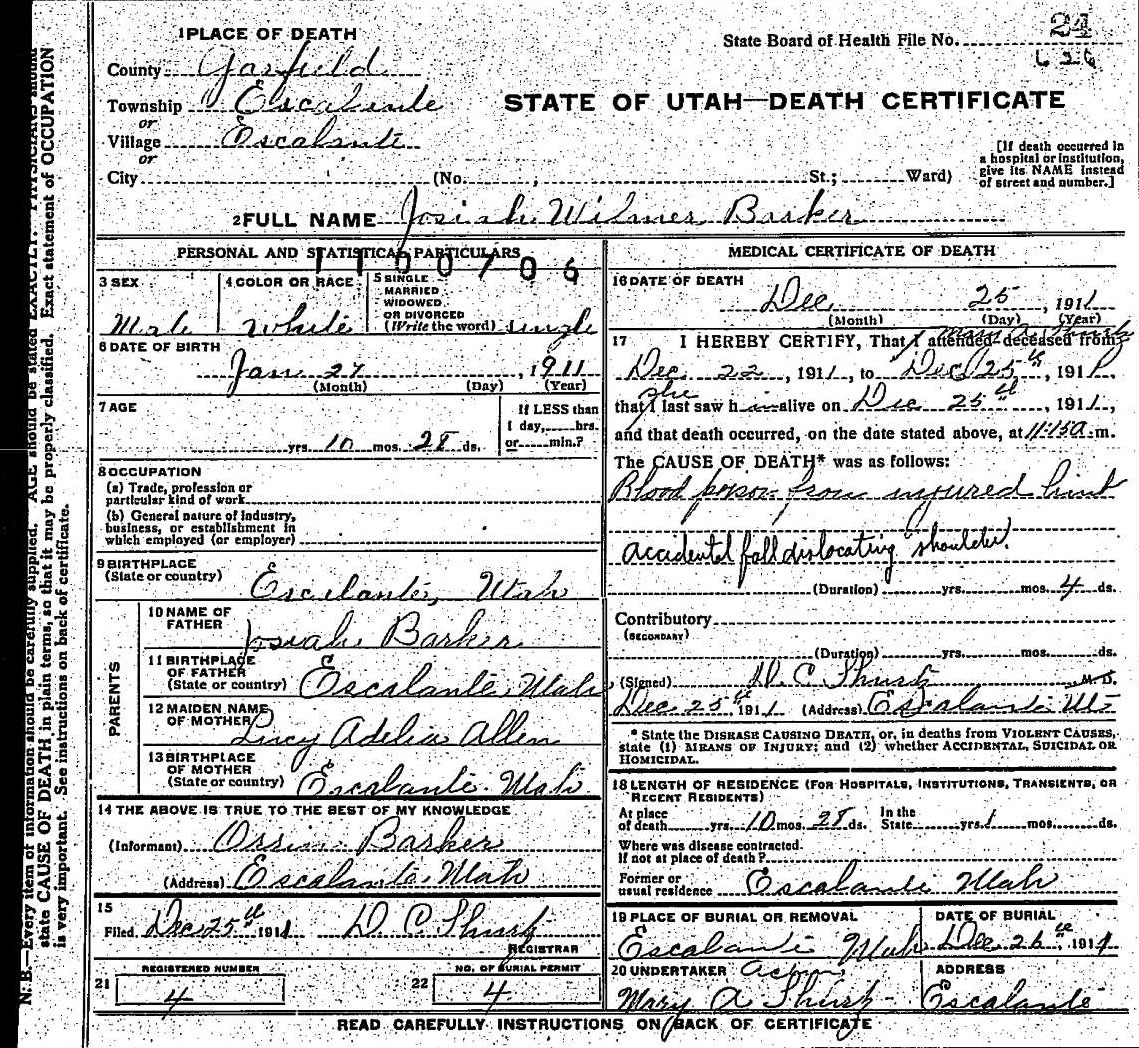 24
1 PLACE OF DEATH
State Board of Health File No.
626
County Garfield
Township Escalante
STATE OF UTAH—DEATH CERTIFICATE
or
Village Escalante
or
City (No. , St.; Ward)
[If death occurred in
a hospital or institution,
give its NAME instead
of street and number.]
2 FULL NAME Josiah Wilmer Barker
PERSONAL AND STATISTICAL PARTICULARS
1100706
3 SEX
Male
4 COLOR OR RACE
White
5 SINGLE
MARRIED
WIDOWED
OR DIVORCED
(Write the word) single
6 DATE OF BIRTH
Jan 27, 1911
(Month) (Day) (Year)
7 AGE
If LESS than
1 day, hrs.
or min.?
yrs. 10 mos. 28 ds.
8 OCCUPATION
(a) Trade, profession or
particular kind of work
(b) General nature of industry,
business, or establishment in
which employed (or employer)
9 BIRTHPLACE
(State or country) Escalante, Utah
PARENTS
10 NAME OF
FATHER Josiah Barker
11 BIRTHPLACE
OF FATHER
(State or country) Escalante Utah
12 MAIDEN NAME
OF MOTHER Lucy Adelia Allen
13 BIRTHPLACE
OF MOTHER
(State or country) Escalante Utah
14 THE ABOVE IS TRUE TO THE BEST OF MY KNOWLEDGE
(Informant) Orrin Barker
(Address) Escalante Utah
15
Filed Dec 25th 1911 D. C. Shurtz
REGISTRAR
REGISTERED NUMBER
21 4
NO. OF BURIAL PERMIT
22 4
MEDICAL CERTIFICATE OF DEATH
16 DATE OF DEATH
Dec 25, 1911
(Month) (Day) (Year)
Mary A Shurtz
17 I HEREBY CERTIFY, That I attended deceased from
Dec 22, 1911, to Dec 25th, 1911.
she
that I last saw him alive on Dec 25th, 1911,
and that death occurred, on the date stated above, at 11:15 a. m.
The CAUSE OF DEATH* was as follows:
Blood poison from injured
accidental fall dislocating shoulder.
(Duration) yrs. mos. 4 ds.
Contributory
(SECONDARY)
(Duration) yrs. mos. ds.
(Signed) D. C. Shurtz M.D.
Dec 25th 1911 (Address) Escalante Ut
* State the DISEASE CAUSING DEATH, or, in deaths from VIOLENT CAUSES,
state (1) MEANS OF INJURY; and (2) whether ACCIDENTAL, SUICIDAL OR
HOMICIDAL.
18 LENGTH OF RESIDENCE (FOR HOSPITALS, INSTITUTIONS, TRANSIENTS, OR
RECENT RESIDENTS)
At place
of death yrs. 10 mos. 28 ds. In the
State yrs. 1 mos. ds.
Where was disease contracted
If not at place of death?
Former or
usual residence Escalante Utah
19 PLACE OF BURIAL OR REMOVAL
Escalante Utah
DATE OF BURIAL
Dec 26th, 1911
20 UNDERTAKER Acting
Mary A Shurtz
ADDRESS
Escalante
READ CAREFULLY INSTRUCTIONS ON BACK OF CERTIFICATE
N. B.—Every item of information should be carefully supplied. AGE should be stated EXACTLY. PHYSICIANS should
state CAUSE OF DEATH in plain terms, so that it may be properly classified. Exact statement of OCCUPATION
is very important. See instructions on back of certificate.